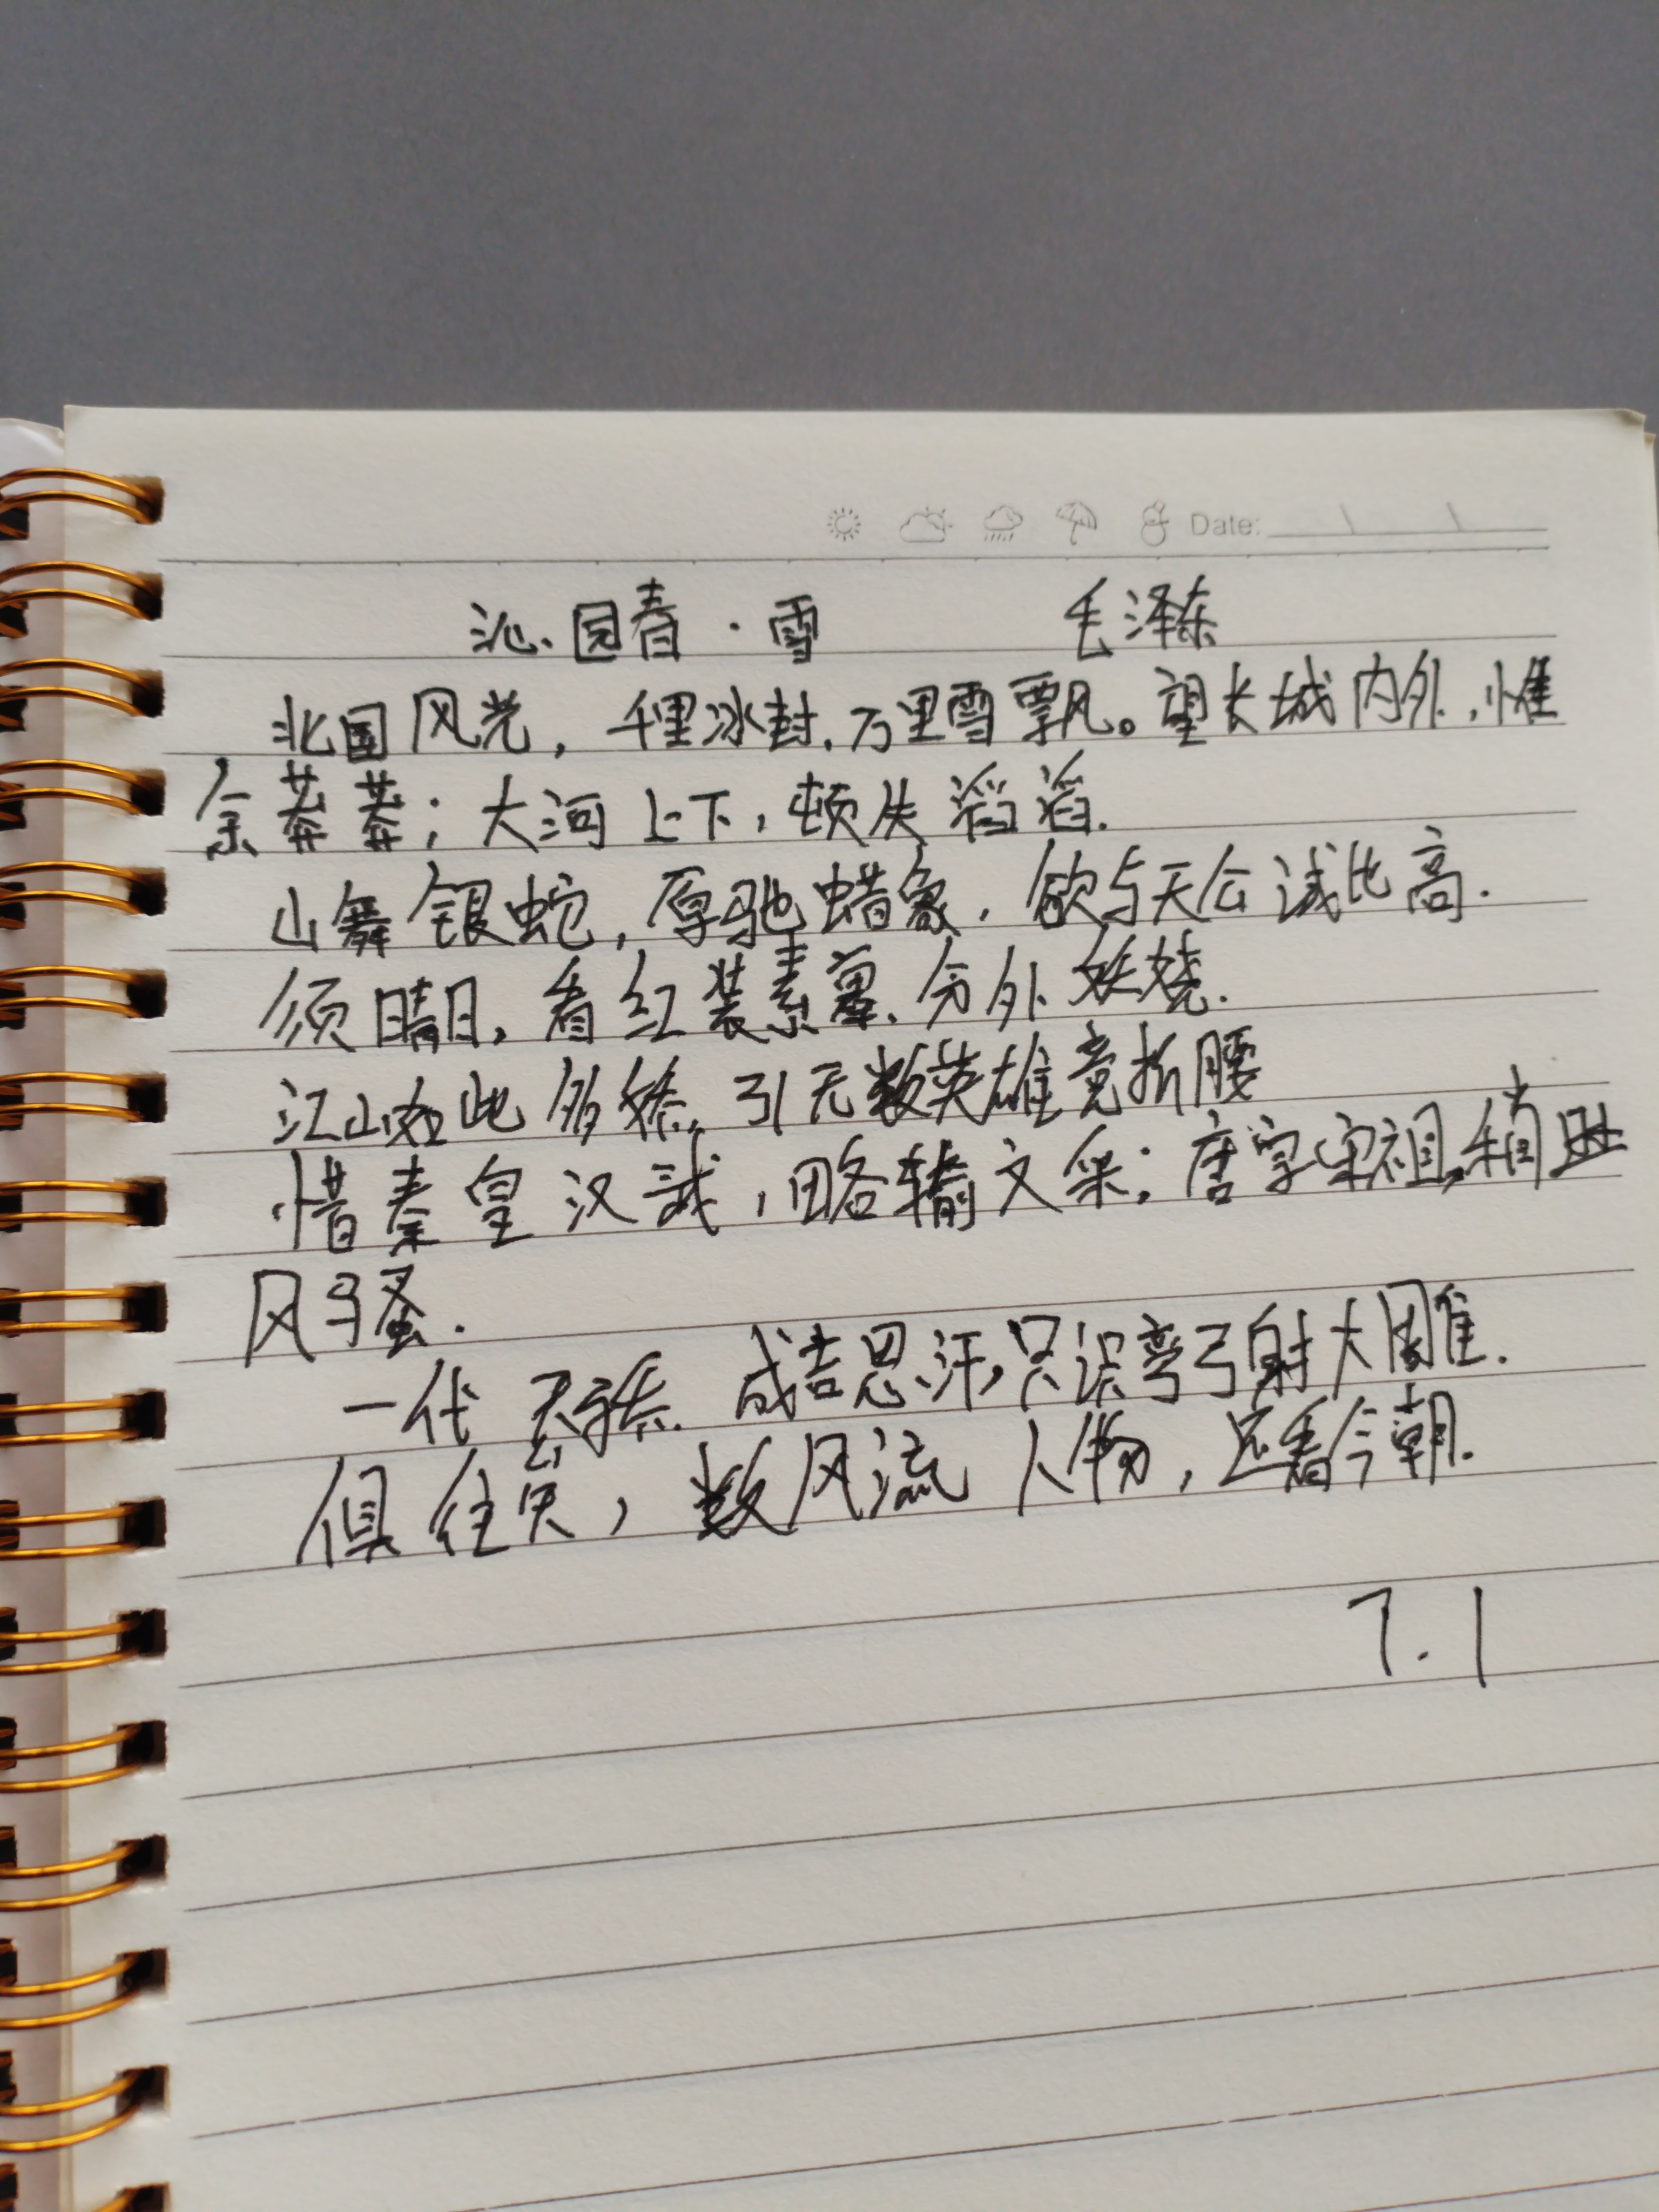 Date:
沁园春·雪 毛泽东
北国风光，千里冰封，万里雪飘。望长城内外，惟
余莽莽；大河上下，顿失滔滔.
山舞银蛇，原驰蜡象，欲与天公试比高.
须晴日，看红装素裹，分外妖娆.
江山如此多娇，引无数英雄竞折腰
惜秦皇汉武，略输文采；唐宗宋祖，稍逊
风骚.
一代天骄，成吉思汗，只识弯弓射大雕.
俱往矣，数风流人物，还看今朝.
7.1